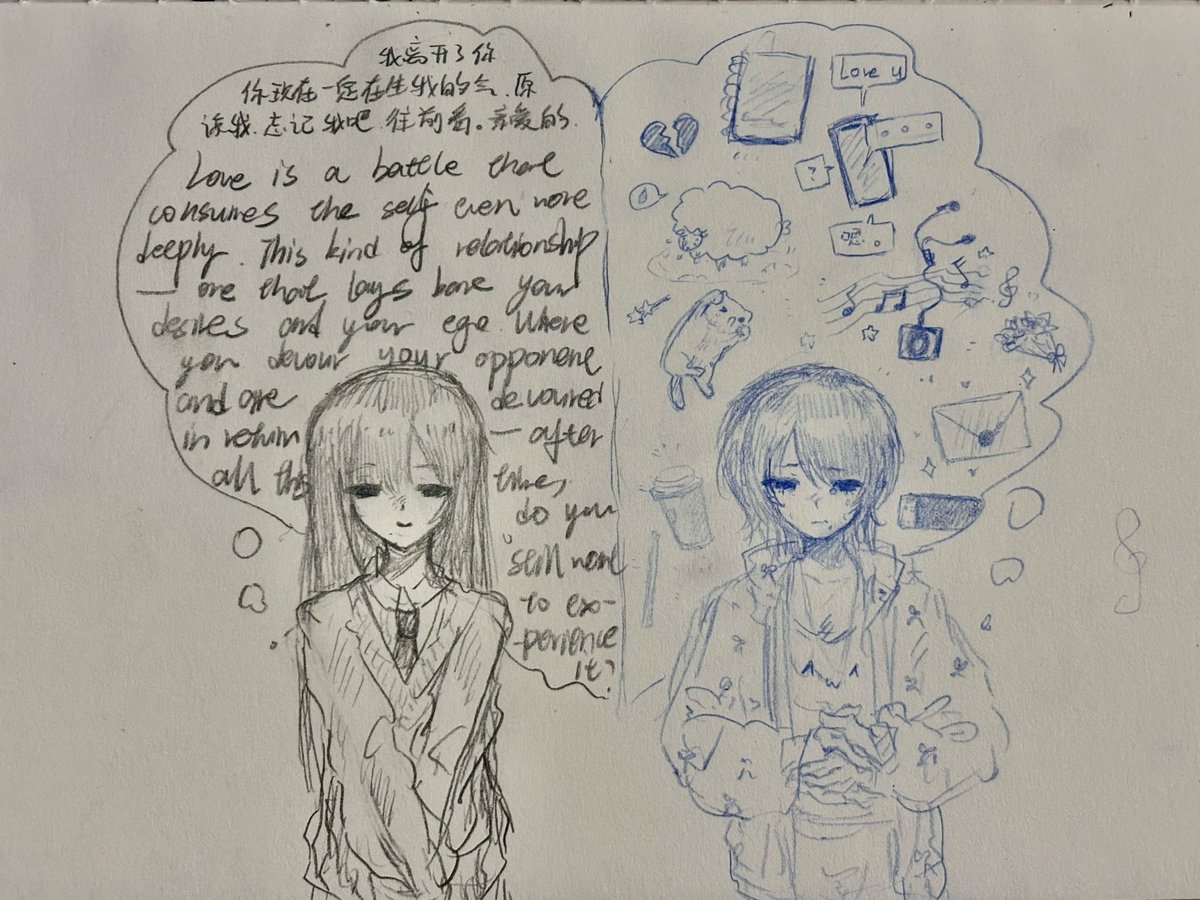 我离开了你
你现在一定在生我的气.原
谅我.忘记我吧.往前看。亲爱的.
Love is a battle that
consumes the self even more
deeply. This kind of relationship
— one that lays bare your
desires and your ego. Where
you devour your opponent
and are devoured
in return — after
all this time,
do you
still want
to ex-
perience
it?
Love u
...
?
嗯。